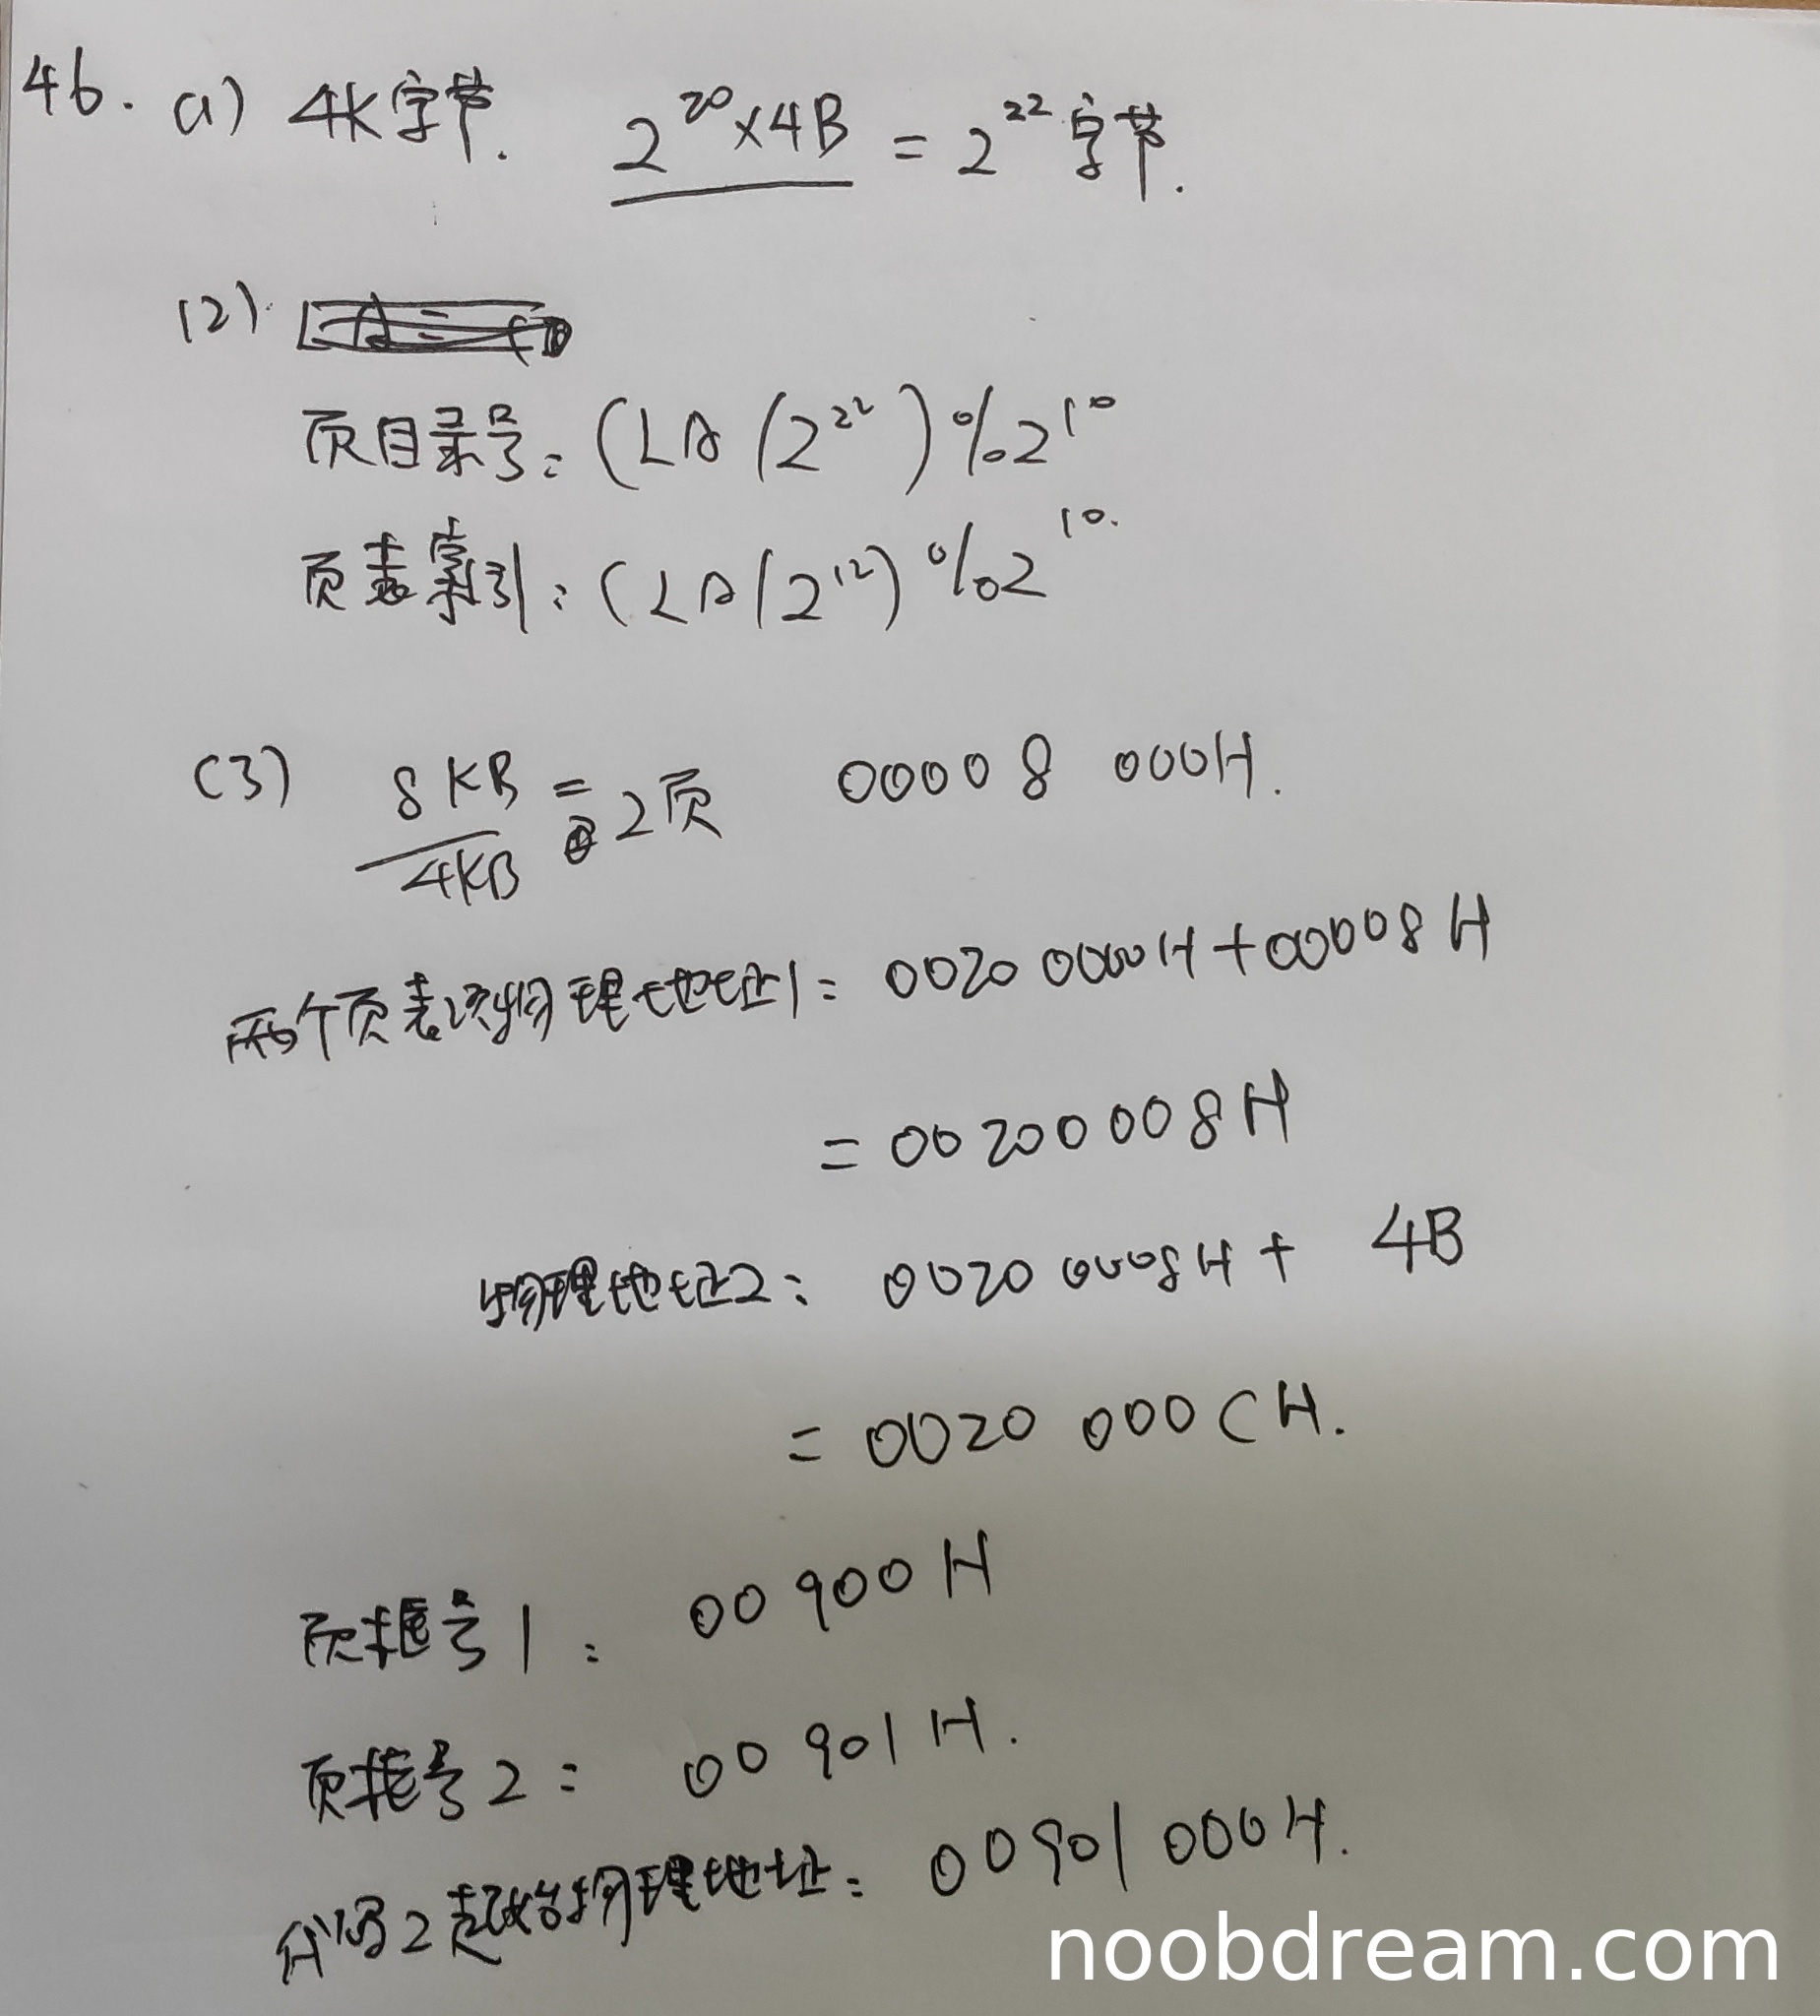 46. (1) 4K字节. 2^20×4B = 2^22字节.
(2).
页目录号: (LA/2^22)%2^10
页表索引: (LA/2^12)%2^10.
(3) 8KB/4KB = 2页 00008 000H.
两个页表项物理地址1: 0020 0000H+00008H
= 00200008H
物理地址2: 0020 0008H + 4B
= 0020 000CH.
页框号1: 00900H
页框号2: 00901H.
代码2起始物理地址: 00901000H.
noobdream.com